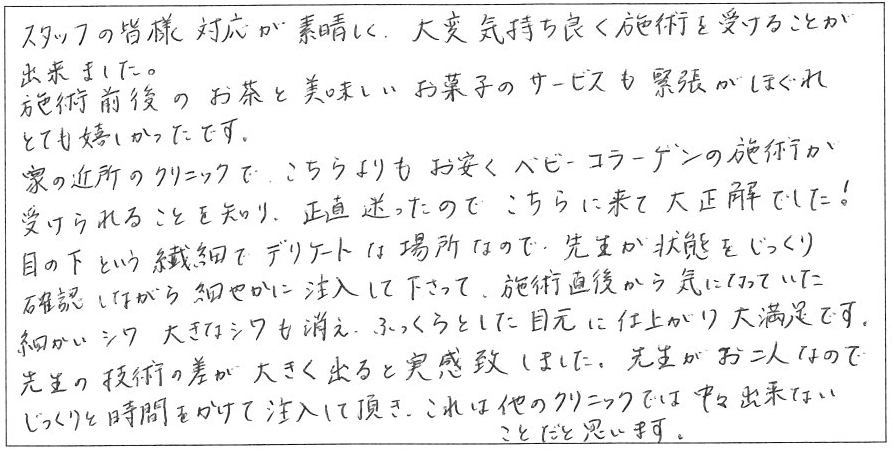 スタッフの皆様 対応が 素晴しく、大変 気持ち良く 施術を受けることが
出来ました。
施術前後の お茶と 美味しい お菓子の サービスも 緊張が ほぐれ
とても嬉しかったです。
家の近所のクリニックで、こちらよりも お安く ベビーコラーゲンの施術が
受けられることを知り、正直 迷ったので こちらに来て 大正解でした！
目の下という 繊細で デリケートな場所なので、先生が状態をじっくり
確認しながら 細やかに 注入して下さって、施術直後から 気になっていた
細かいシワ 大きなシワも消え、ふっくらとした目元に仕上がり 大満足です。
先生の技術の差が 大きく出ると実感致しました。先生が お二人なので
じっくりと時間をかけて注入して頂き、これは他のクリニックでは中々出来ない
ことだと思います。